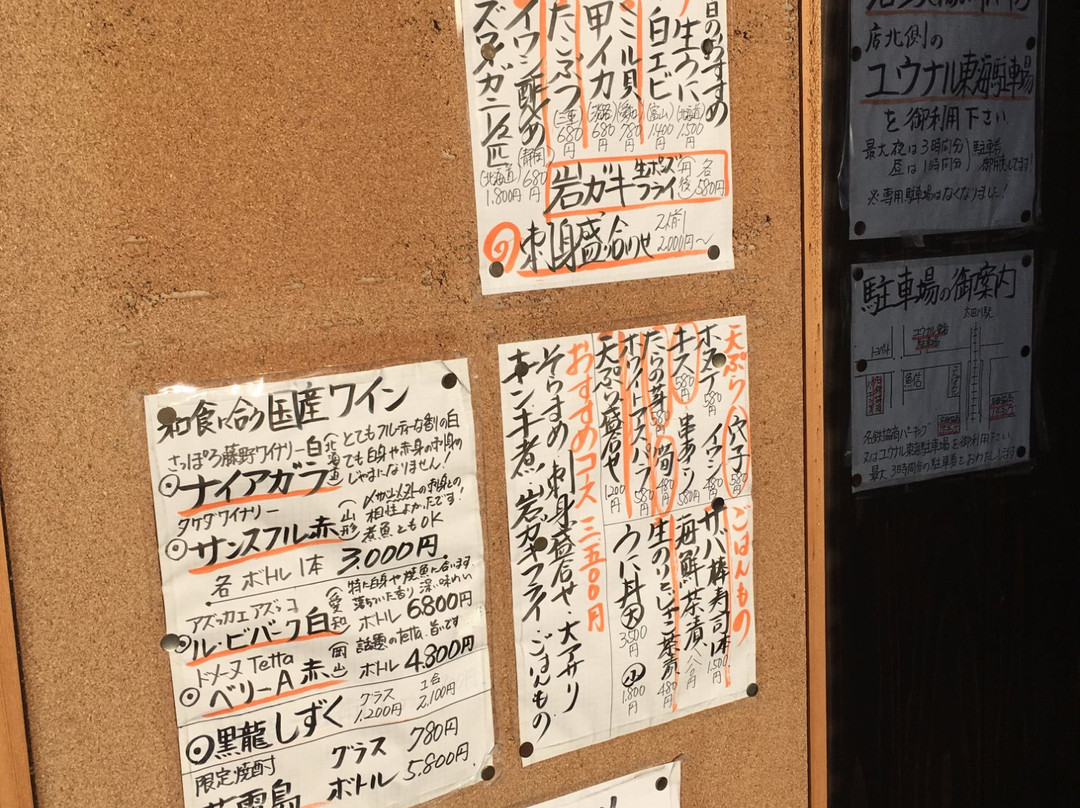 日のおすすめ
生うに(北海道)1,500円
白エビ(富山)1,400円
ミル貝(愛知)780円
甲イカ 680円
たこぶつ(三重)680円
イワシ酢〆め(静岡)680円
ズワイガニ1/2匹(北海道)1,800円
岩ガキ 生ポンズ フライ(丹後)各580円
刺身盛合わせ 2人前 2,000円〜
天ぷら
穴子 580円
ホタテ 580円
イワシ 480円
キス 580円
串あサリ 580円
たらの芽 580円
ホワイトアスパラ 580円
天ぷら盛合せ 1,200円
ごはんもの
サバ棒寿司1本 1,500円
海鮮茶漬 880円
生のりとしらこ茶漬 480円
うに丼 大 3,500円 小 1,800円
おすすめコース 三五〇〇円
そらまめ・刺身盛合せ・大アサリ
キンキ煮・岩ガキフライ・ごはんもの
和食に合う国産ワイン
さっぽろ藤野ワイナリー白(北海道)
とてもフルーティーな香りの白
でも白身や赤身の刺身の
じゃまになりません!
ナイアガラ
タケダワイナリー
サンスフル・赤(山形)
相性よかったです!
煮魚ともOK
各ボトル1本 3,000円
アズッカエアズッコ
ル・ビバーク白(愛知)
特に白身や焼魚に合います。
落ちついた香り 深い味わい
ボトル 6800円
ドメーヌTetta
ベリーA赤(岡山)
話題のtetta、旨いです
ボトル 4,800円
黒龍しずく グラス 1,200円 1合 2,100円
限定焼酎
グラス 780円
ボトル 5,800円
店北側の
ユウナル東海駐車場
を御利用下さい
最大夜は3時間分
昼は1時間分
駐車券
※専用駐車場はなくなりました!
駐車場の御案内
太田川駅
ユウナル東海
駐車場
魚信
名鉄協商パーキング
又はユウナル東海駐車場を御利用下さい
最大3時間分の駐車券をおわたしします